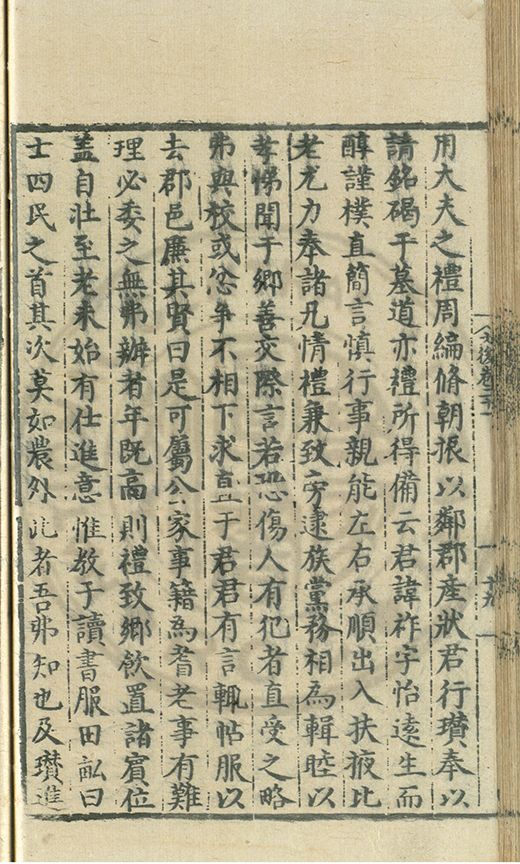 用大夫之禮周編脩朝振以鄰郡產狀君行瓚奉以
請銘碣于墓道亦禮所得備云君諱祚字怡遠生而
醇謹樸直簡言慎行事親能左右承順出入扶掖比
老尤力奉諸兄情禮兼致旁逮族黨務相為輯睦以
孝悌聞于鄉善交際言若恐傷人有犯者直受之略
弗與校或忿爭不相下求直于君君有言輒帖服以
去郡邑廉其賢曰是可屬公家事籍為耆老事有難
理必委之無弗辦者年既高則禮致鄉飲置諸賓位
盖自壯至老未始有仕進意惟教子讀書服田畝曰
士四民之首其次莫如農外此者吾弗知也及瓚進